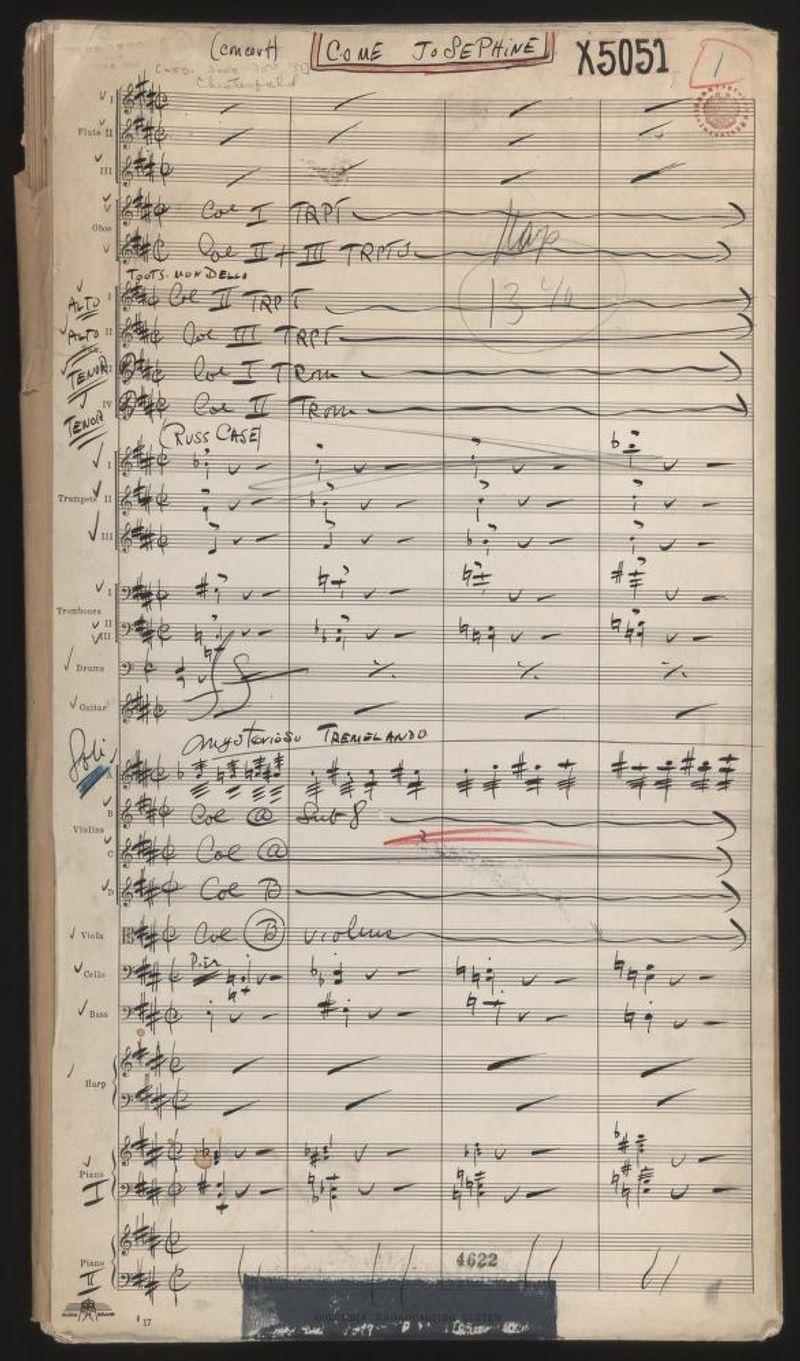 (concert) COME JOSEPHINE X5051 1
Chesterfield
I
Flute II
III
Oboe Col I TRPT
Col II + III TRPTS
Harp
TOOTS MONDELLO
ALTO I Col II TRPT
13
ALTO II Col III TRPT
TENOR Col I TROM
TENOR IV Col II TROM
(RUSS CASE)
I
Trumpets II
III
I
Trombones
II
III
Drums
Guitar
Mysterioso TREMELANDO
Soli A
B Col A Sub 8
Violins
C Col A
D Col B
Viola Col B violins
Cello
Bass
Harp
Piano
I
4622
Piano
II
17
COLUMBIA BROADCASTING SYSTEM